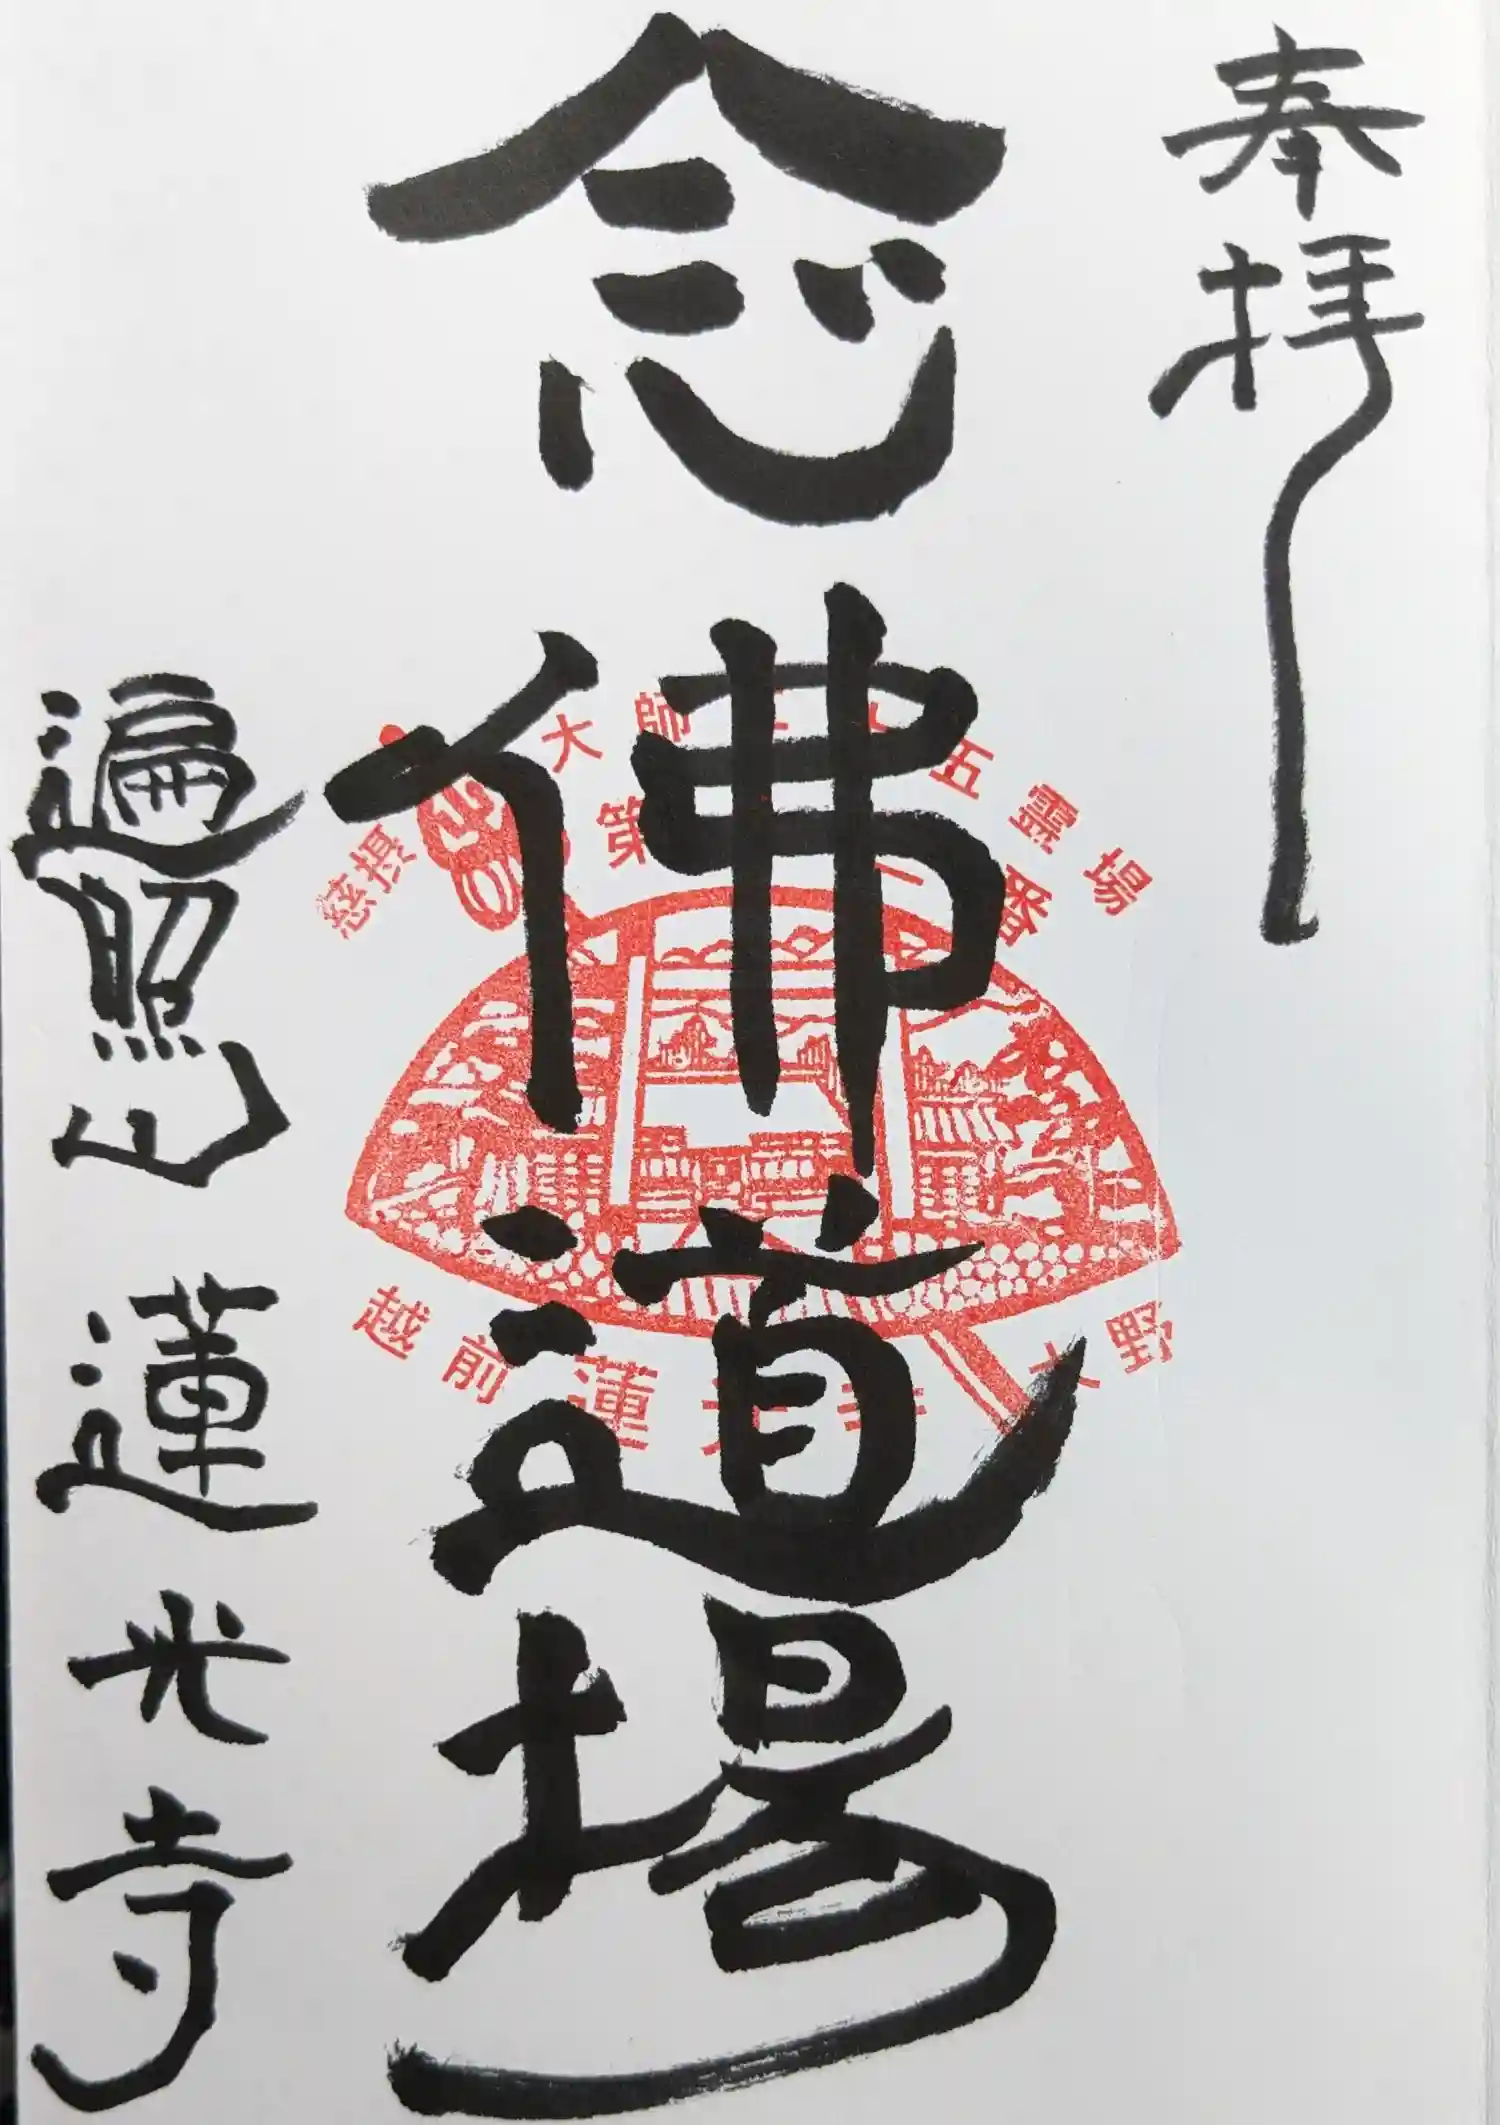 奉拝
念佛道場
慈摂大師
五霊場
第
二番
越前
大野
蓮光寺
遍照山 蓮光寺